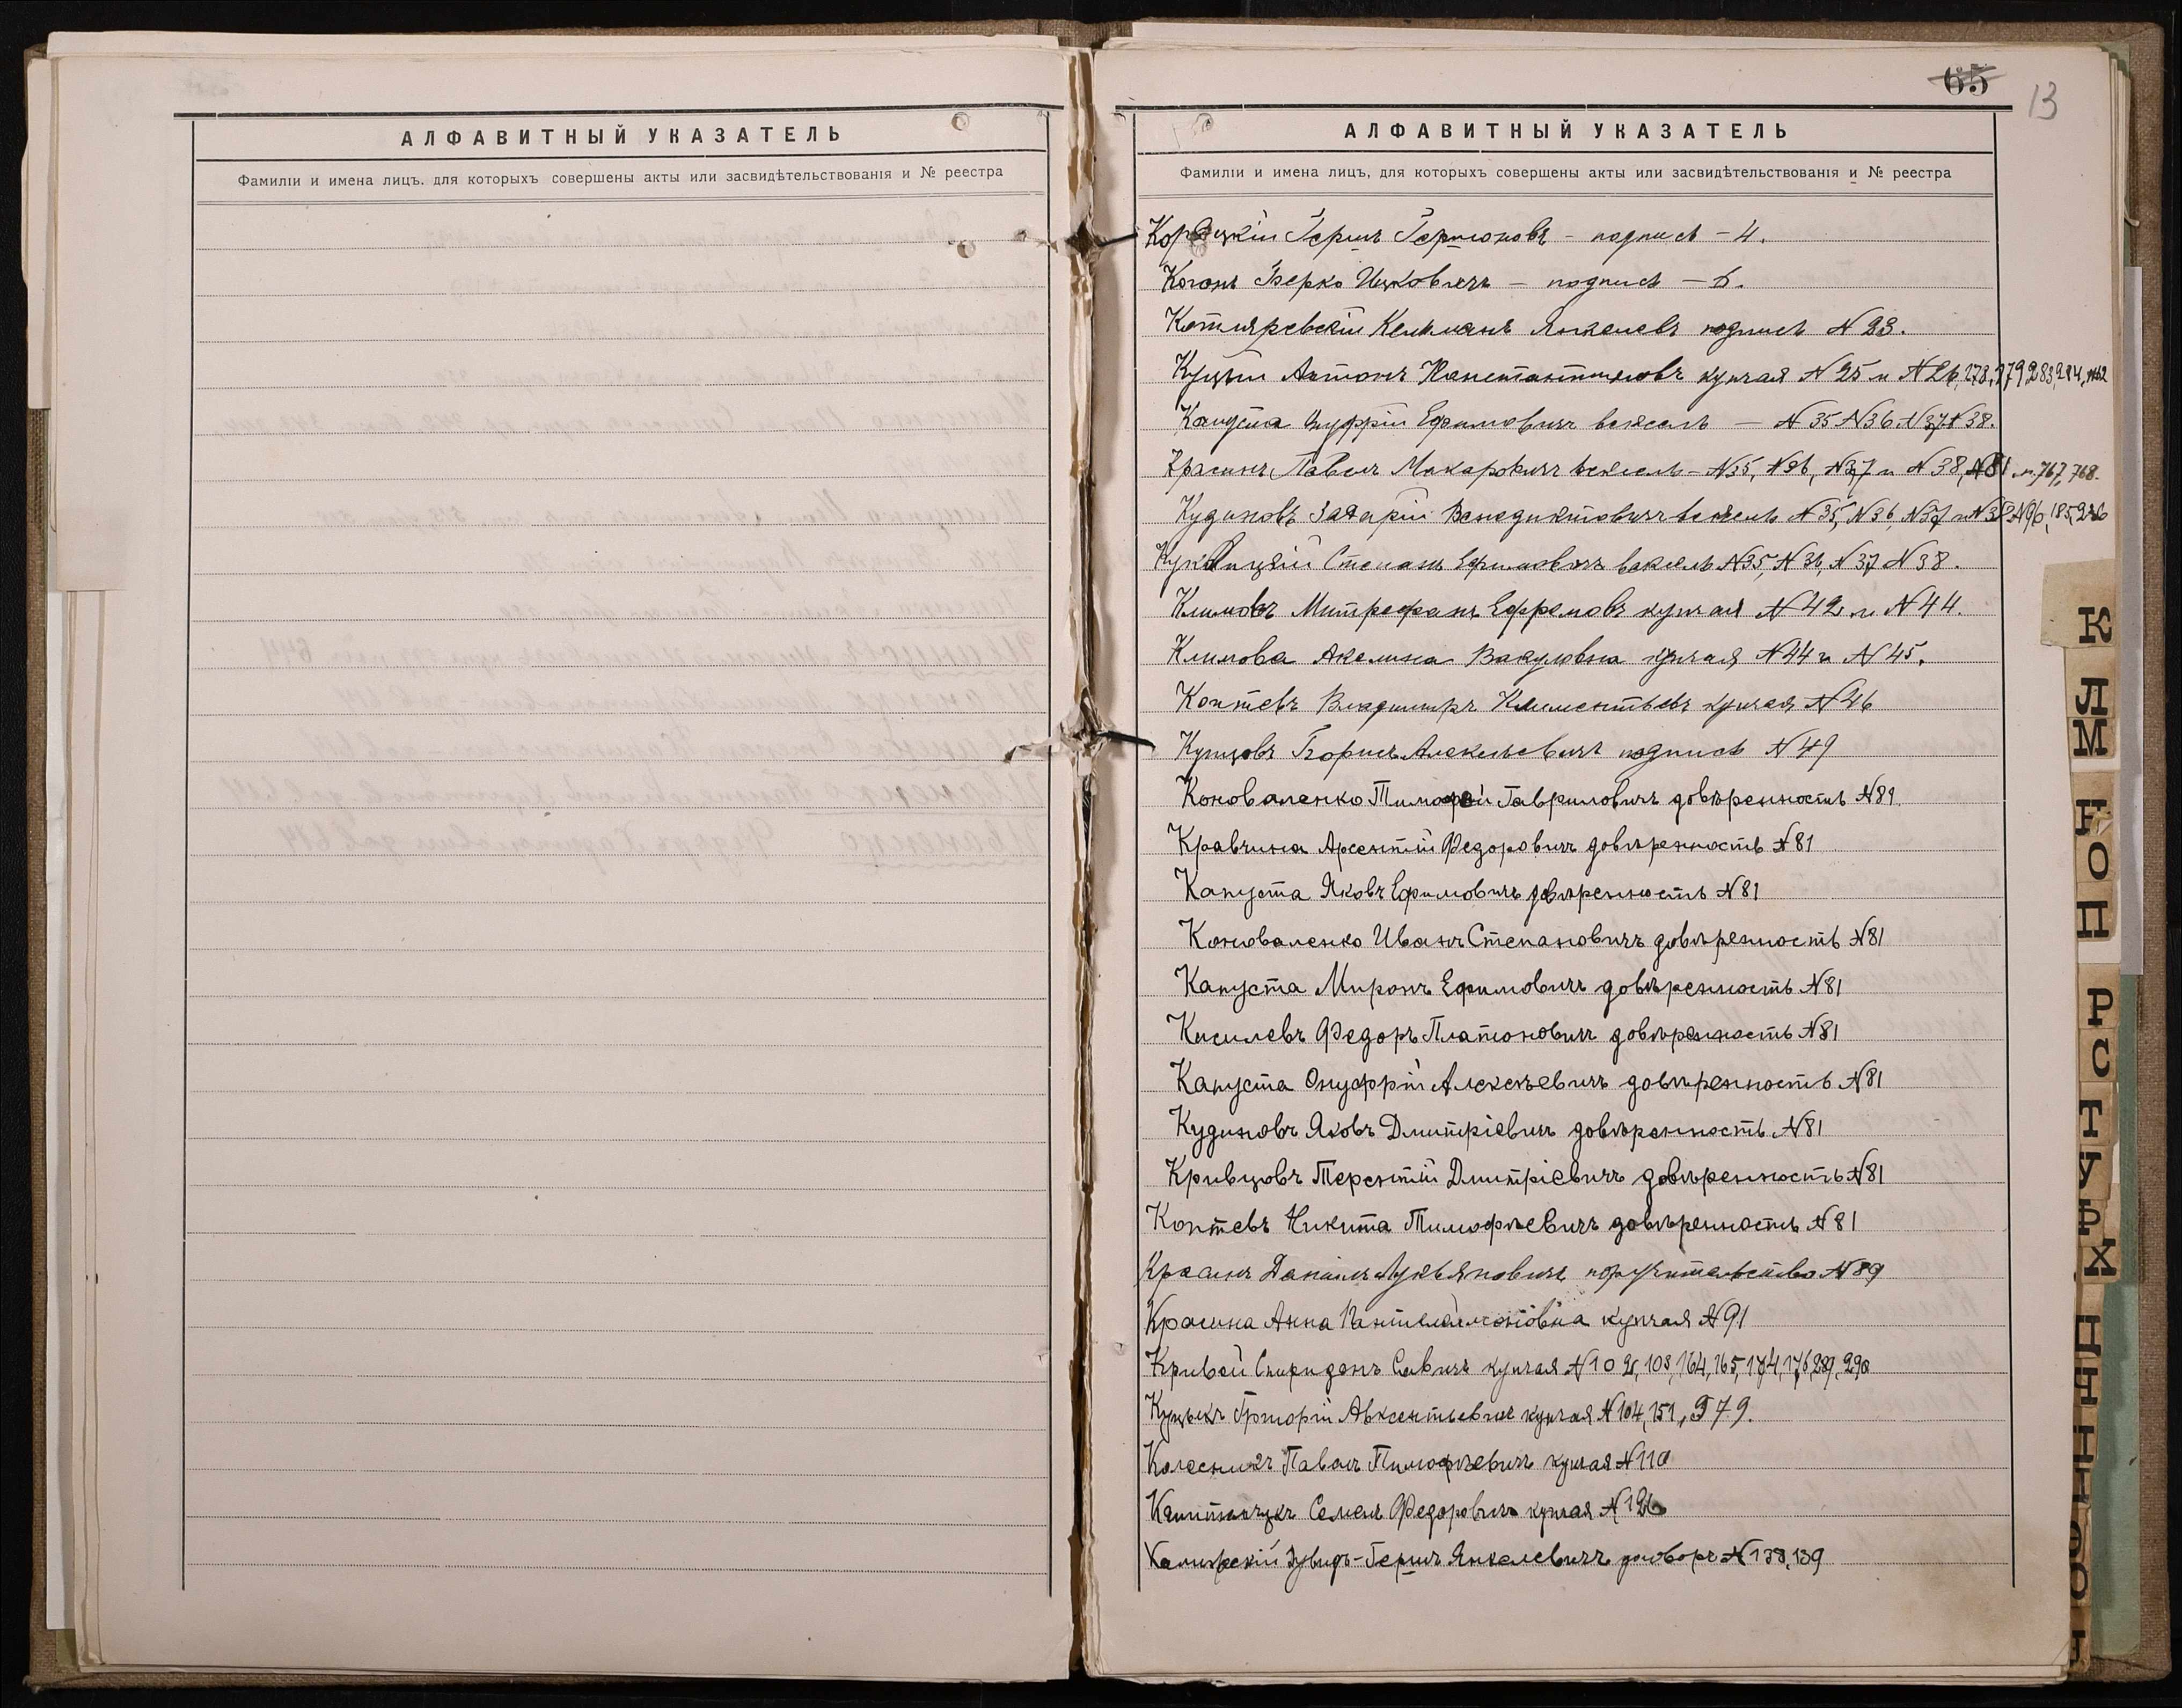 АЛФАВИТНЫЙ УКАЗАТЕЛЬ
Фамиліи и имена лицъ. для которыхъ совершены акты или засвидѣтельствованія и № реестра
65
13
АЛФАВИТНЫЙ УКАЗАТЕЛЬ
Фамиліи и имена лицъ, для которыхъ совершены акты или засвидѣтельствованія и № реестра
Гершъ Гершоновъ – подпись – 4.
Коганъ Берко Ицковичъ – подпись – 6.
Котляревскій Кельманъ Янкелевъ подпись N 23.
Куцый Антонъ Константиновъ купчая N 25 и N 26, 278, 279, 283, 284,
Онуфрій Ефимовичъ вексель – N 35 N 36 N 37 N 38.
Красинъ Павелъ Макаровичъ вексель – N 35, N 36, N 37 и N 38, N 81 и 767, 768.
Кудиновъ Захарій Венедиктовичъ вексель N 35, N 36, N 37 и N 38 N 96, 185,
Степанъ Ефимовичъ вексель N 35, N 36, N 37 N 38.
Климовъ Митрофанъ Ефремовъ купчая N 42 и N 44.
Климова Акелина Вакуловна купчая N 44 и N 45.
Коптевъ Владимиръ Климентьевъ купчая N 46
Купцовъ Борисъ Алексѣевичъ подпись N 49
Коноваленко Тимофей Гавриловичъ довѣренность N 81.
Кравчина Арсентій Федоровичъ довѣренность N 81
Капуста Яковъ Ефимовичъ довѣренность N 81
Коноваленко Иванъ Степановичъ довѣренность N 81
Капуста Миронъ Ефимовичъ довѣренность N 81
Кисилевъ Федоръ Платоновичъ довѣренность N 81
Капуста Онуфрій Алексѣевичъ довѣренность N 81
Кудиновъ Яковъ Дмитріевичъ довѣренность N 81
Кривцовъ Терентій Дмитріевичъ довѣренность N 81
Коптевъ Никита Тимофѣевичъ довѣренность N 81
Красинъ Даніилъ Лукьяновичъ поручительство N 89
Красина Анна Пантелеймоновна купчая N 91
Кривой Спиридонъ Савичъ купчая N 102, 103, 164, 165, 174, 176, 289, 290
Куцыкъ Григорій Авксентьевичъ купчая N 104, 151, 579.
Колесникъ Павелъ Тимофѣевичъ купчая N 110
Семенъ Федоровичъ купчая N 126
Зувидъ-Гершъ Янкелевичъ договоръ N 138, 139
К
Л
М
О
П
Р
С
Т
У
Х
Ц